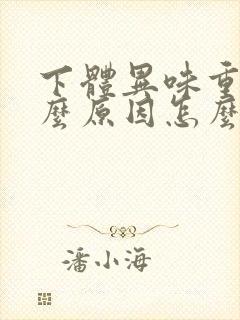 下體異味重
麼原因怎麼
潘小海